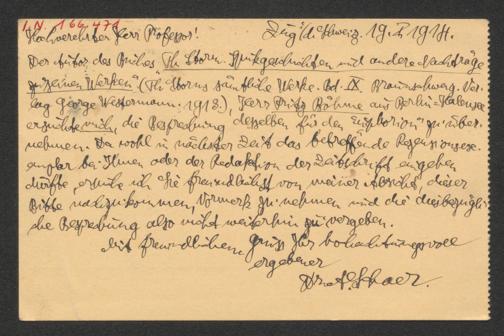 I.N. 166.471
Hochverehrter Herr Professor! Zug i/d. Schweiz. 19. I 1914.
Der Autor des Buches "Th. Storm. Spukgeschichten und andere Nachträge
zu seinen Werken" (Th. Storms sämtliche Werke. Bd. IX. Braunschweig. Ver-
lag George Westermann. 1913.), Herr Fritz Böhme aus Berlin-Halensee
ersuchte mich die Besprechung desselben für den Euphorion zu über-
nehmen. Da wohl in nächster Zeit das betreffende Rezensionsex-
emplar bei Ihnen oder der Redaktion der Zeitschrift eingehen
dürfte ersuche ich Sie freundlichst von meiner Absicht, dieser
Bitte nachzukommen, Vormerk zu nehmen und die diesbezügli-
che Besprechung also nicht weiterhin zu vergeben.
Mit freundlichem Gruss Ihr hochachtungsvoll
ergebener
Dr. Alf. Schaer.